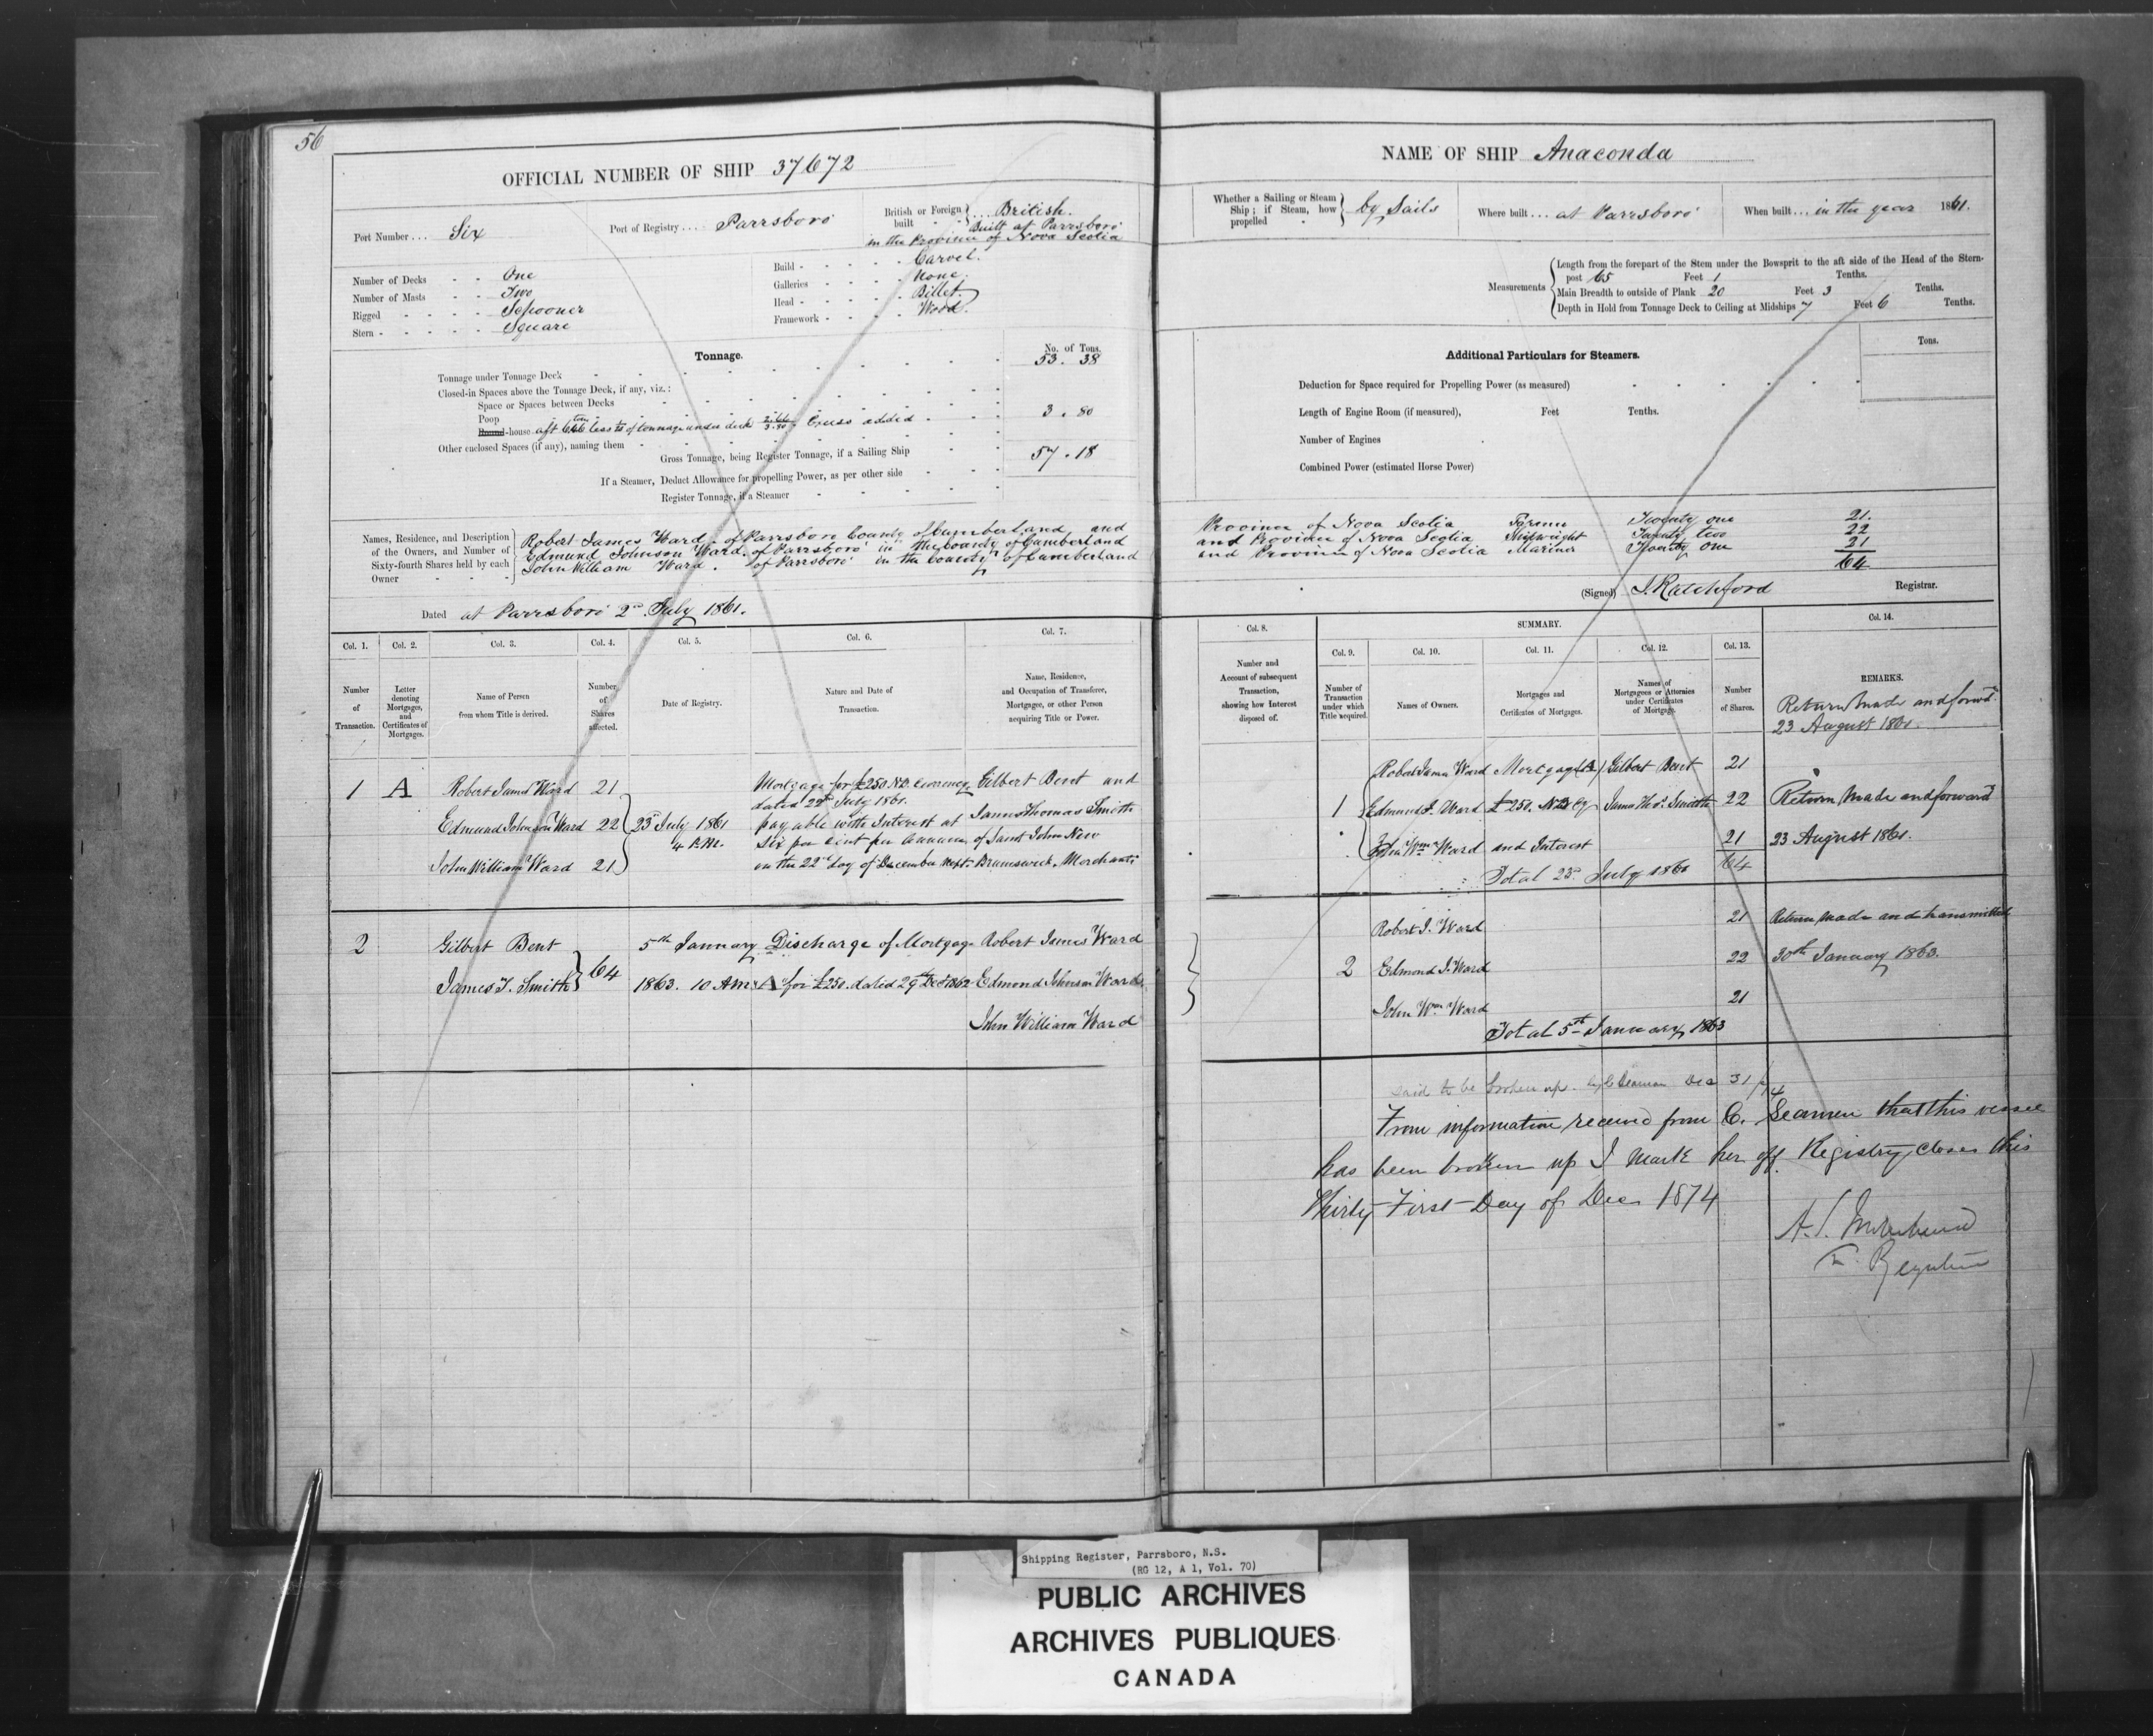 56
OFFICIAL NUMBER OF SHIP 37672
Port Number ... Six
Port of Registry .... Parrsboro
British or Foreign built - British. Built at Parrsboro
in the Province of Nova Scotia
Number of Decks - - One
Number of Masts - - Two
Rigged - - - - Schooner
Stern - - - - - Square
Build - - - - - Carvel.
Galleries - - - - None.
Head - - - - - Billet.
Framework - - - - Wood.
Tonnage.
No. of Tons.
Tonnage under Tonnage Deck 53. 38
Closed-in Spaces above the Tonnage Deck, if any, viz.:
Space or Spaces between Decks
Poop
Round-house aft less of tonnage under deck 3.80 Excess added 3. 80
Other enclosed Spaces (if any), naming them
Gross Tonnage, being Register Tonnage, if a Sailing Ship 57. 18
If a Steamer, Deduct Allowance for propelling Power, as per other side
Register Tonnage, if a Steamer
Names, Residence, and Description of the Owners, and Number of Sixty-fourth Shares held by each Owner
Robert James Ward, of Parrsboro County of Cumberland and
Edmund Johnson Ward, of Parrsboro' in the County of Cumberland
John William Ward. of Parrsboro' in the County of Cumberland
Dated at Parrsboro' 2nd July 1861.
NAME OF SHIP Anaconda
Whether a Sailing or Steam Ship; if Steam, how propelled - by Sails
Where built ... at Parrsboro'
When built ... in the year 1861.
Measurements
Length from the forepart of the Stem under the Bowsprit to the aft side of the Head of the Stern-
post 65 Feet 1 Tenths.
Main Breadth to outside of Plank 20 Feet 3 Tenths.
Depth in Hold from Tonnage Deck to Ceiling at Midships 7 Feet 6 Tenths.
Additional Particulars for Steamers.
Tons.
Deduction for Space required for Propelling Power (as measured)
Length of Engine Room (if measured), Feet Tenths.
Number of Engines
Combined Power (estimated Horse Power)
Province of Nova Scotia Farmer Twenty one 21.
and Province of Nova Scotia Shipwright Twenty two 22
and Province of Nova Scotia Mariner Twenty one 21
64
(Signed) J. Ratchford Registrar.
Col. 1. Col. 2. Col. 3. Col. 4. Col. 5. Col. 6. Col. 7.
Number of Transaction.
Letter denoting Mortgages, and Certificates of Mortgages.
Name of Person from whom Title is derived.
Number of Shares affected.
Date of Registry.
Nature and Date of Transaction.
Name, Residence, and Occupation of Transferee, Mortgagee, or other Person acquiring Title or Power.
1 A Robert James Ward 21 Mortgage for £250 N.B. Currency Gilbert Bent and
dated 22nd July 1861.
Edmund Johnson Ward 22 23rd July 1861 payable with Interest at James Thomas Smith
4 P.M. Six per cent per Annum of Saint John New
John William Ward 21 on the 22nd day of December next Brunswick, Merchants
2 Gilbert Bent 5th January Discharge of Mortgage Robert James Ward
James T. Smith 64 1863. 10 Am A for £250. dated 29th Decr 1862 Edmond Johnson Ward
John William Ward
Col. 8.
SUMMARY.
Col. 9. Col. 10. Col. 11. Col. 12. Col. 13. Col. 14.
Number and Account of subsequent Transaction, showing how Interest disposed of.
Number of Transaction under which Title acquired.
Names of Owners.
Mortgages and Certificates of Mortgages.
Names of Mortgagees or Attornies under Certificates of Mortgage.
Number of Shares.
REMARKS.
Return Made and forwd
23 August 1861.
Robert James Ward Mortgage (A) Gilbert Bent 21
1 Edmund J. Ward £250. N.B. Cy James Thos. Smith 22 Return Made and forward
John Wm Ward and Interest 21 23 August 1861.
Total 23rd July 1861 64
Robert J. Ward 21 Return Made and transmitted
2 Edmond J. Ward 22 30th January 1863.
John Wm Ward 21
Total 5th January 1863
said to be broken up by C Seaman Dec 31/74
From information received from C. Seaman that this vessel
has been broken up I Mark her off Registry closes this
Thirty First Day of Dec 1874
Shipping Register, Parrsboro, N.S.
(RG 12, A 1, Vol. 70)
PUBLIC ARCHIVES
ARCHIVES PUBLIQUES
CANADA